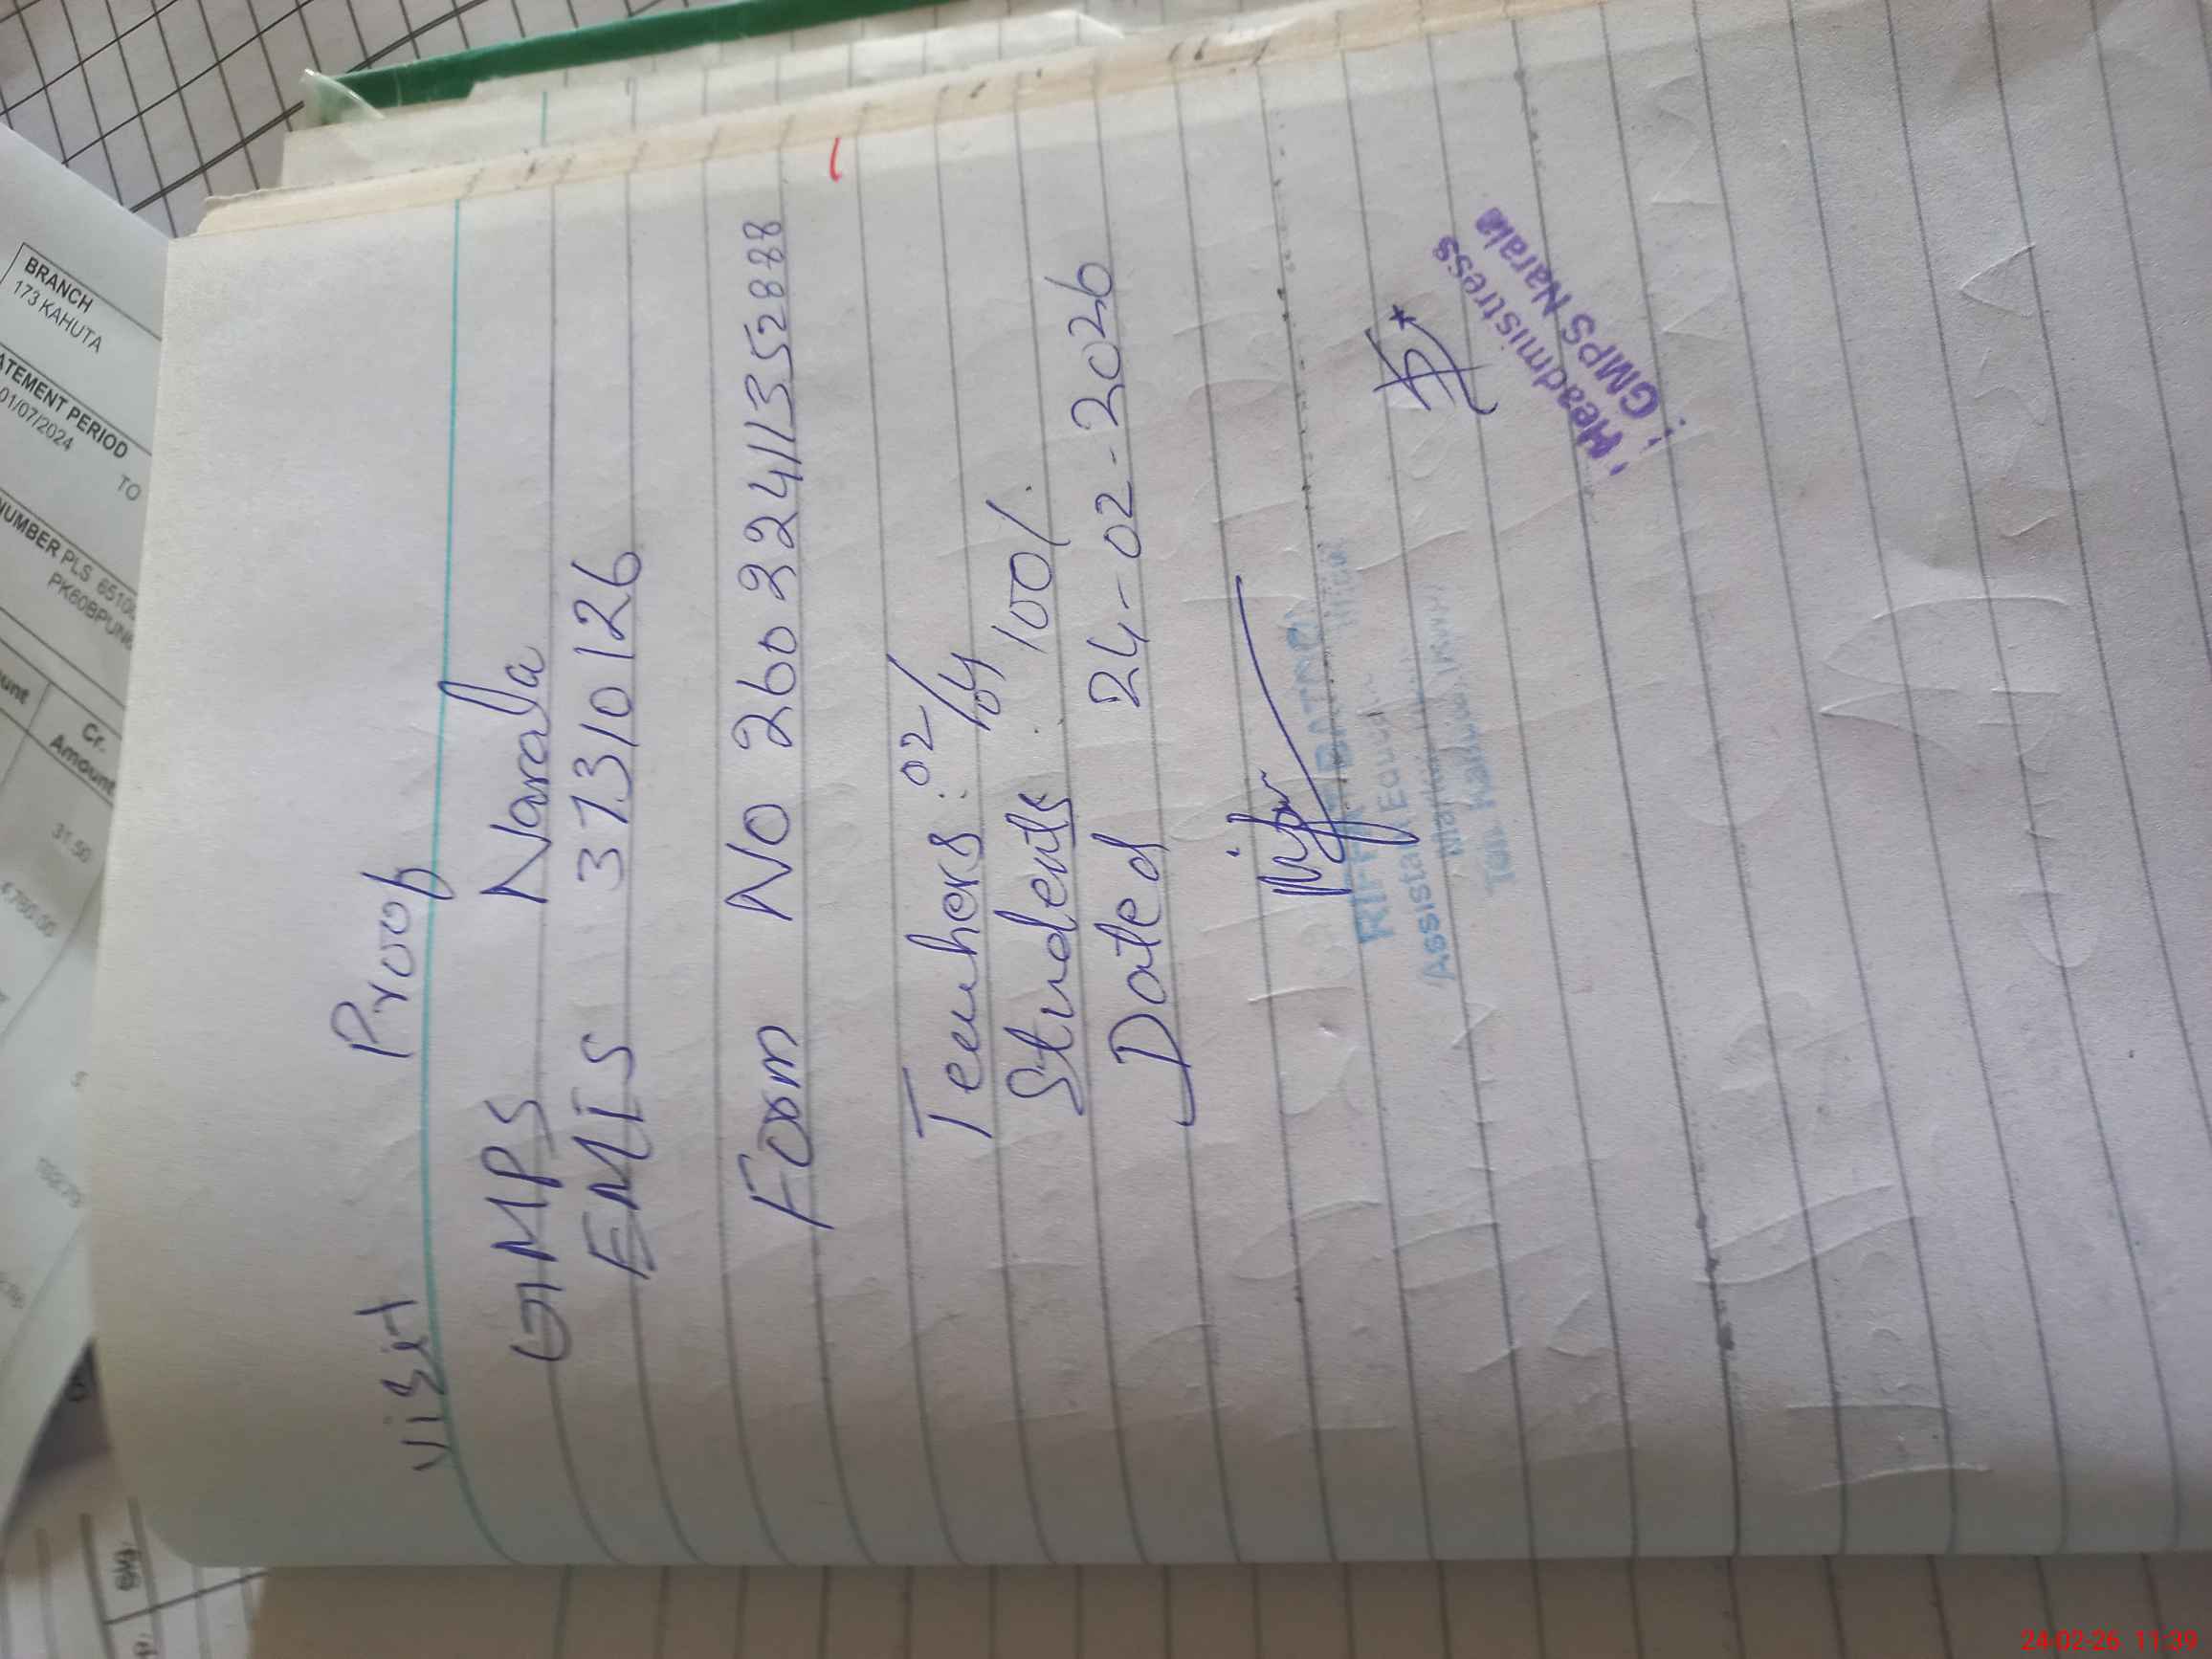 visit Proof
GMPS Narala
EMIS 37310126
Form No 260224113528 88
Teachers : 02/04
Students 100%
Dated 24-02-2026
Assistant Educ
Headmistress
GMPS Narala
BRANCH
173 KAHUTA
ATEMENT PERIOD
01/07/2024
TO
NUMBER PLS 6510
PK60BPUN
Cr.
Amount
31.50
24-02-26 11:39